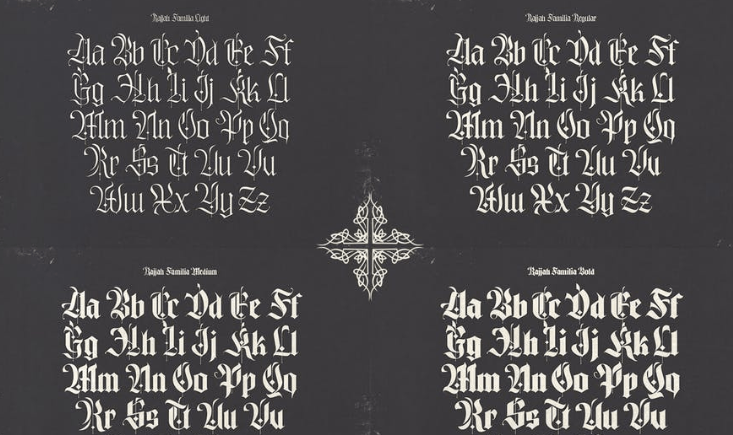 Rajjah Familia Light
Aa Bb Cc Dd Ee Ff
Gg Hh Ii Jj Kk Ll
Mm Nn Oo Pp Qq
Rr Ss Tt Uu Vv
Ww Xx Yy Zz
Rajjah Familia Regular
Aa Bb Cc Dd Ee Ff
Gg Hh Ii Jj Kk Ll
Mm Nn Oo Pp Qq
Rr Ss Tt Uu Vv
Ww Xx Yy Zz
Rajjah Familia Medium
Aa Bb Cc Dd Ee Ff
Gg Hh Ii Jj Kk Ll
Mm Nn Oo Pp Qq
Rr Ss Tt Uu Vv
Rajjah Familia Bold
Aa Bb Cc Dd Ee Ff
Gg Hh Ii Jj Kk Ll
Mm Nn Oo Pp Qq
Rr Ss Tt Uu Vv